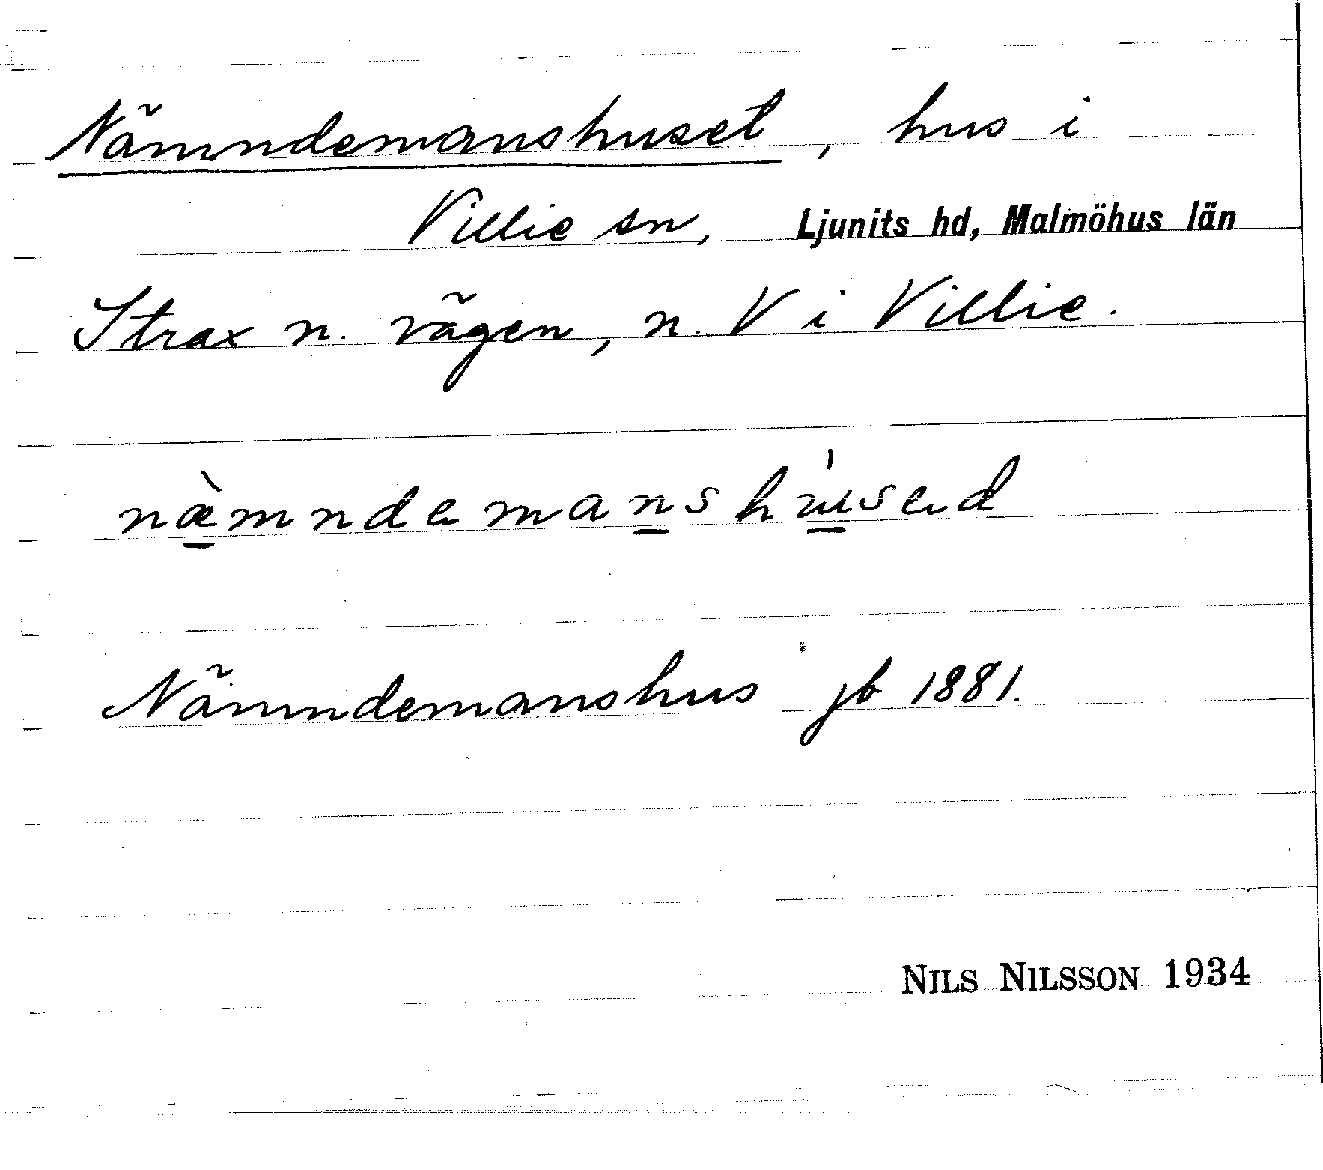 Nämndemanshuset, hus i
Villie sn, Ljunits hd, Malmöhus län
Strax n. vägen, n. V i Villie.
næ̀mndemanshúsed
Nämndemanshus jb 1881.
NILS NILSSON 1934